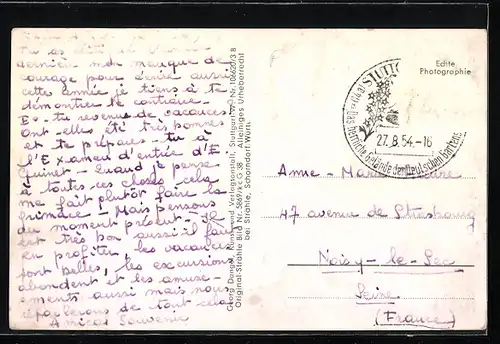 tu as été
dernier mon manque de
courage pour écrire aussi
cette année je tiens à te
démontrer le contraire
Es-tu revenue de vacances?
Ont elles été très bonnes
et te prépares-tu à
l'Examen d'entrée d'E
Quinet - Quand je pense
à toutes ces choses cela
me fait plutôt faire la
grimace - Mais pensons
du moment présent - Il
est très bon aussi il faut
en profiter, les vacances
sont belles, les excursions
abondent et les amuse-
ments aussi mais nous
reparlerons de tout cela
Amical Souvenir
Georg Dangel, Kunst- und Verlagsanstalt, Stuttgart-W Nr. 106620/3 B
Original-Ströhle Bild Nr. G 38 Alleiniges Urheberrecht
bei Ströhle, Schorndorf Württ.
Echte
Photographie
STUTTG
Das herrliche Gelände der Deutschen Gartens
27.8.54.-16
Anne-Marie
47 avenue de Strasbourg
Noisy-le-Sec
Seine
(France)